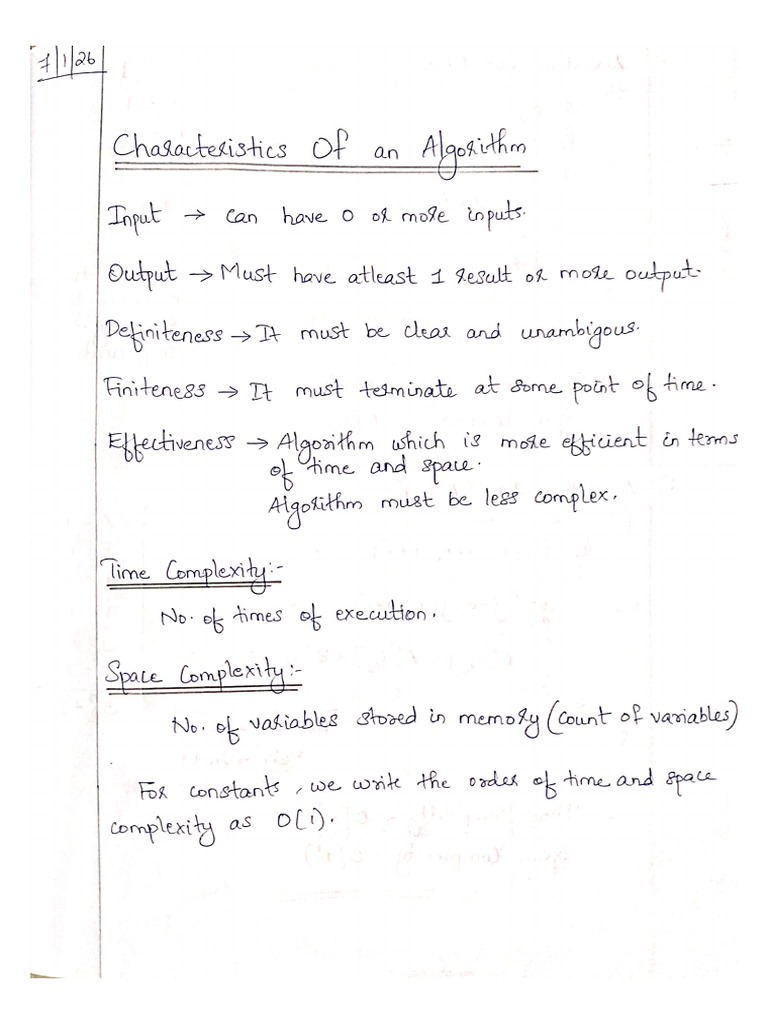 7/1/26
Characteristics Of an Algorithm
Input → can have 0 or more inputs.
Output → Must have atleast 1 result or more output.
Definiteness → It must be clear and unambigous.
Finiteness → It must terminate at some point of time.
Effectiveness → Algorithm which is more efficient in terms
of time and space.
Algorithm must be less complex.
Time Complexity:-
No. of times of execution.
Space Complexity:-
No. of variables stored in memory (count of variables)
For constants, we write the order of time and space
complexity as O(1).